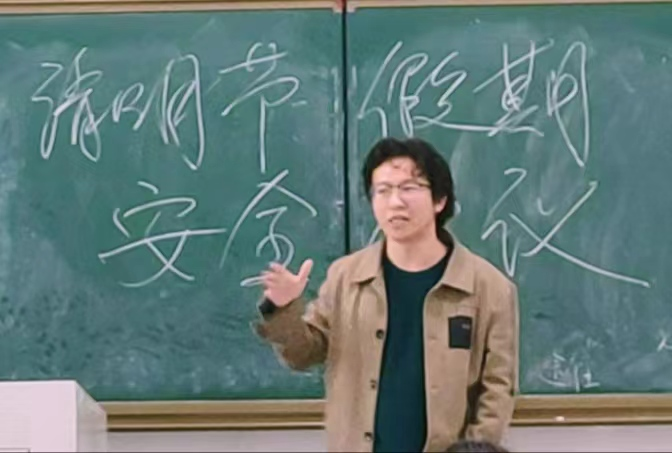 清明节假期
安全 议